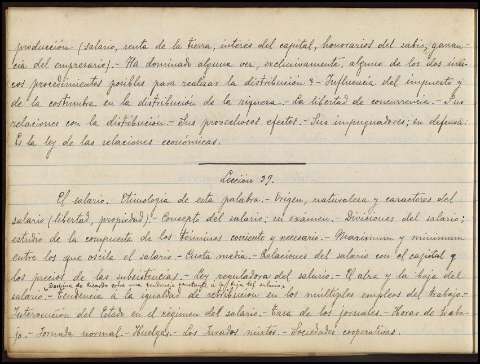 producción (salario, renta de la tierra, interés del capital, honorarios del sabio, ganan-
cia del empresario).- Ha dominado alguna vez, exclusivamente, alguno de los dos úni-
cos procedimientos posibles para realizar la distribución?- Influencia del impuesto y
de la costumbre en la distribución de la riqueza.- La libertad de concurrencia.- Sus
relaciones con la distribución.- Sus provechosos efectos.- Sus impugnadores; su defensa.
Es la ley de las relaciones económicas.
Lección 27.
El salario. Etimología de esta palabra.- Origen, naturaleza y caracteres del
salario (libertad, propiedad).- Concepto del salario; su examen.- Divisiones del salario;
estudio de la compuesta de los términos corriente y necesario.- Maximum y minimum
entre los que oscila el salario.- Cuota media.- Relaciones del salario con el capital y
los precios de las subsistencias.- Ley reguladora del salario.- El alza y la baja del
salario.- Tendencia a la igualdad de retribución en los múltiples empleos del trabajo.-
Intervención del Estado en el régimen del salario.- Tasa de los jornales.- Horas de traba-
jo.- Jornada normal.- Huelgas.- Los Jurados mixtos.- Sociedades cooperativas.